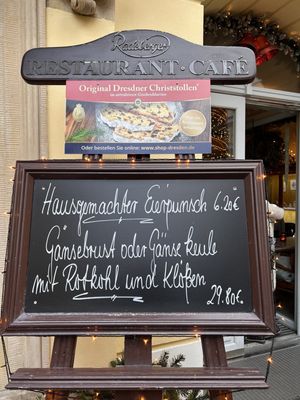 Radeberger
RESTAURANT · CAFÉ
Original Dresdner Christstollen
Oder bestellen Sie online: www.shop-dresden.de
"Hausgemachter Eierpunsch 6.20€
Gänsebrust oder Gänsekeule
mit Rotkohl und Klößen
29.80€